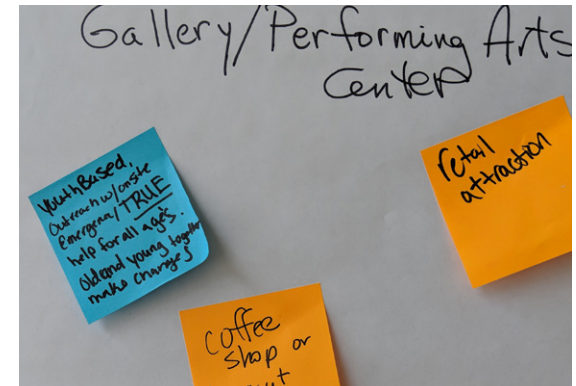 Gallery/Performing Arts
Center
Youth Based,
Outreach w/ onsite
TRUE
help for all ages.
old and young together
make changes
retail
attraction
coffee
shop or